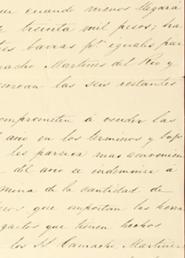 que cuando menos llegará
treinta mil pesos, ha
barras pr iguales par
Camacho Martinez del Rio y
las seis restantes
comprometen a vender las
año en los terminos y baj
les parezca mas convenien
del oro se
de la cantidad de
que importan los hono
gastos que tienen hechos
los SS Camacho Martinez